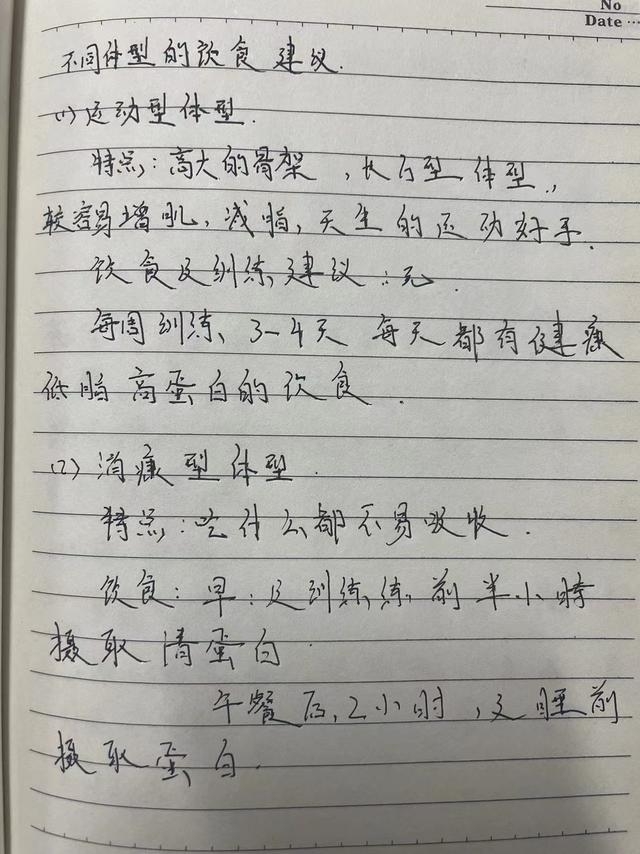 No
Date
不同体型的饮食建议.
(1)运动型体型.
特点:高大的骨架,长方型体型.,
较容易增肌,减脂,天生的运动好手.
饮食及训练建议:无.
每周训练、3-4天 每天都有健康
低脂高蛋白的饮食.
(2)消瘦型体型.
特点:吃什么都不易吸收.
饮食:早:及训练,练,前半小时
摄取清蛋白
午餐后,2小时,及睡前
摄取蛋白.